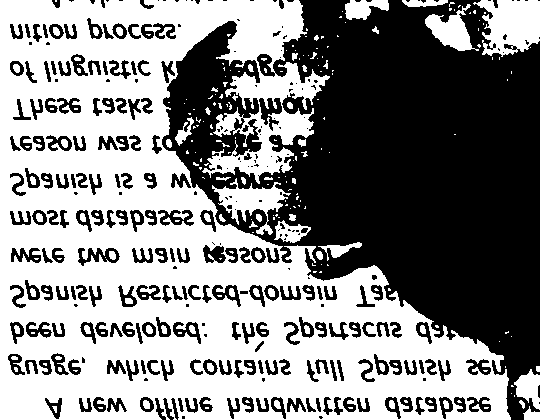 A new offline handwritten database
guage, which contains full Spanish
been developed: the Spartacus
Spanish Restricted-domain Task
were two main reasons for
most databases do not
Spanish is a widespread
reason was to create a
These tasks are
of linguistic knowledge
nition process.
As the Spartacus